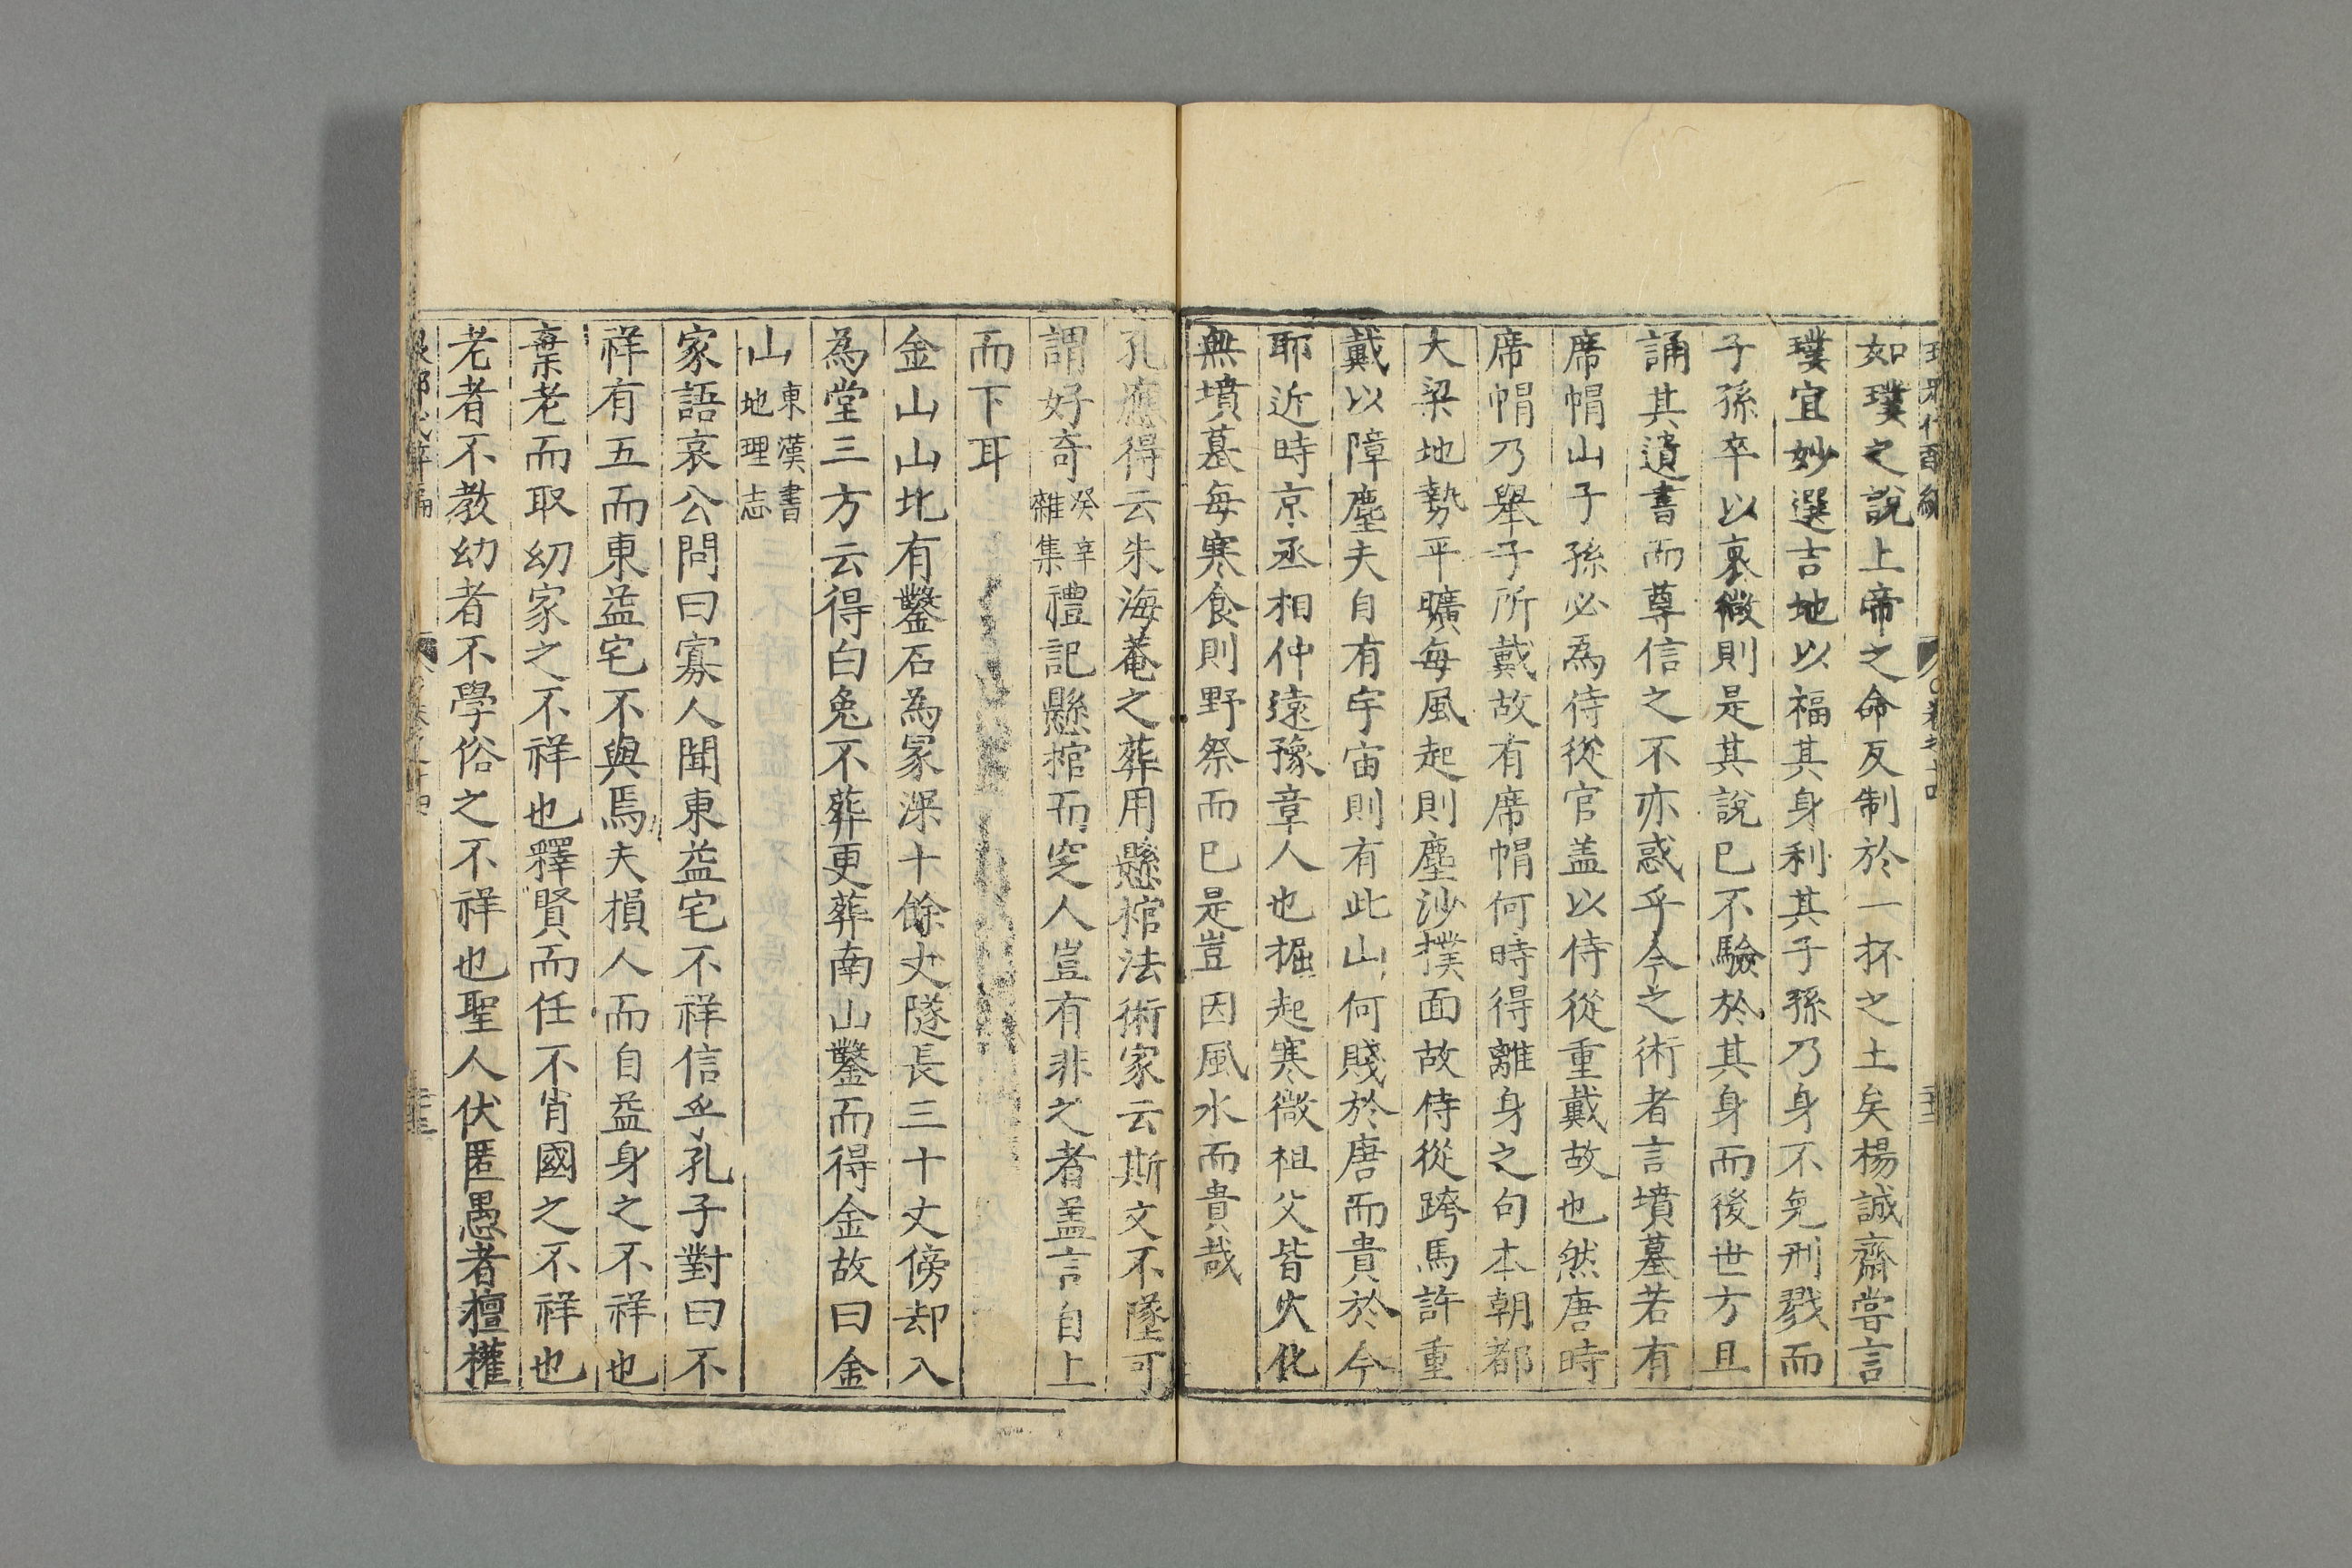 如璞之說上帝之命反制於一抔之土矣楊誠齋嘗言
璞宜妙選吉地以福其身利其子孫乃身不免刑戮而
子孫卒以衰微則是其說已不驗於其身而後世方且
誦其遺書而尊信之不亦惑乎今之術者言墳墓若有
席帽山子孫必爲侍從官盖以侍從重戴故也然唐時
席帽乃舉子所戴故有席帽何時得離身之句本朝都
大梁地勢平曠每風起則塵沙撲面故侍從跨馬許重
戴以障塵夫自有宇宙則有此山何賤於唐而貴於今
耶近時京丞相仲遠豫章人也掘起寒微祖父皆火化
無墳墓每寒食則野祭而已是豈因風水而貴哉
孔應得云朱海菴之葬用懸棺法術家云斯文不墜可
謂好奇癸辛雜集禮記懸棺而窆人豈有非之者盖言自上
而下耳
金山山北有鑿石為冢深十餘丈隧長三十丈傍却入
為堂三方云得白兔不葬更葬南山鑿而得金故曰金
山東漢書地理志
家語哀公問曰寡人聞東益宅不祥信乎孔子對曰不
祥有五而東益宅不與焉夫損人而自益身之不祥也
棄老而取幼家之不祥也釋賢而任不肖國之不祥也
老者不教幼者不學俗之不祥也聖人伏匿愚者擅權